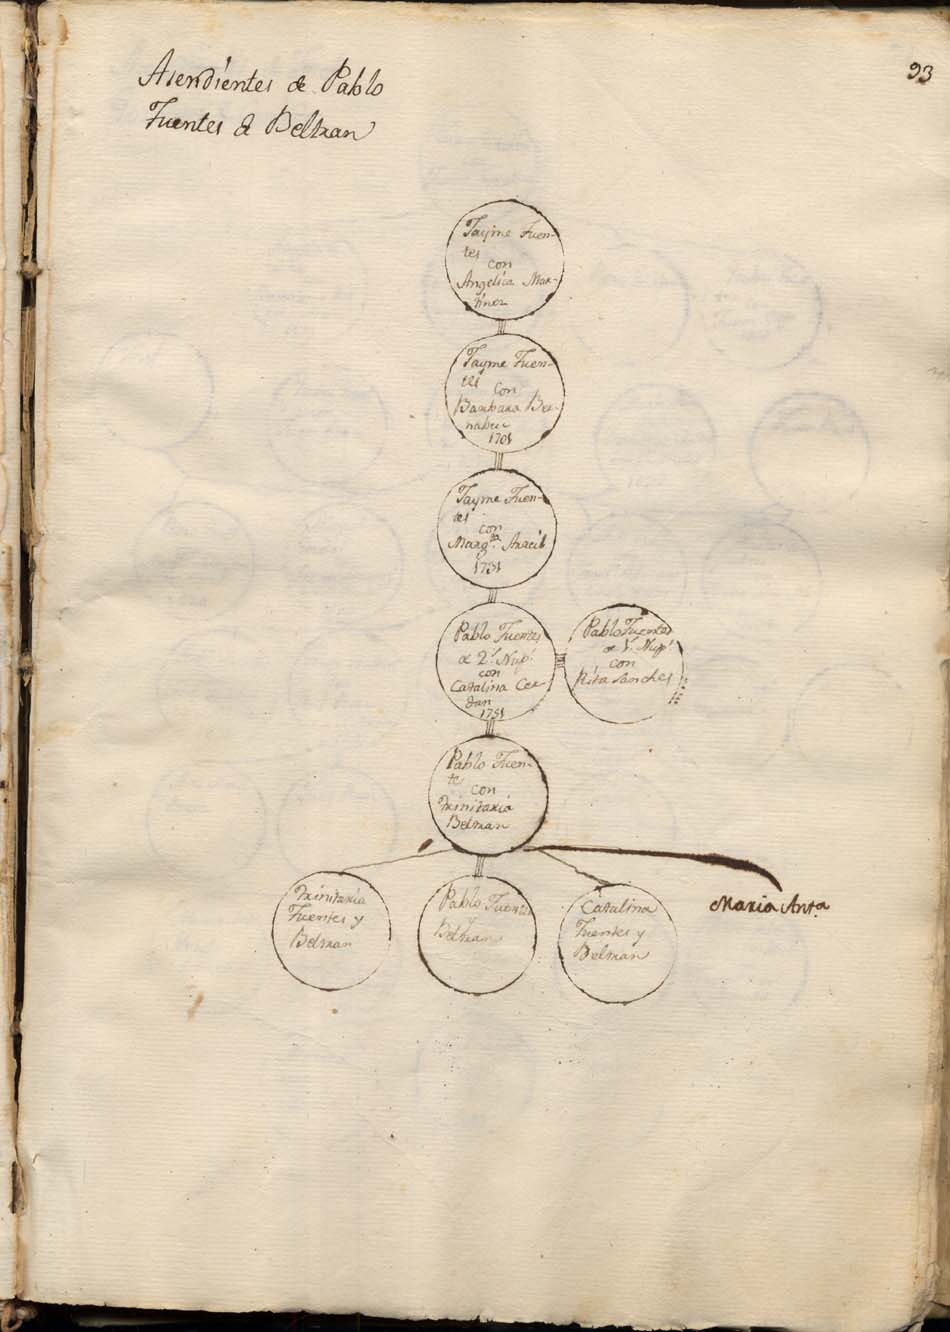 93
Asendientes de Pablo
Fuentes & Beltran
Jayme Fuen-
tes
con
Angelica Mar-
tinez
Jayme Fuen-
tes
con
Barbara Ber-
nabeu
1701
Jayme Fuen-
tes
con
Margta. Aracil
1731
Pablo Fuentes
de 2s. Nups.
con
Catalina Cer
dan
1751
Pablo Fuentes
de 1s. Nups.
con
Rita Sanches
Pablo Fuen-
tes
con
Trinitaria
Beltran
Trinitaria
Fuentes y
Beltran
Pablo Fuentes
y
Beltran
Catalina
Fuentes y
Beltran
Maria Anta.